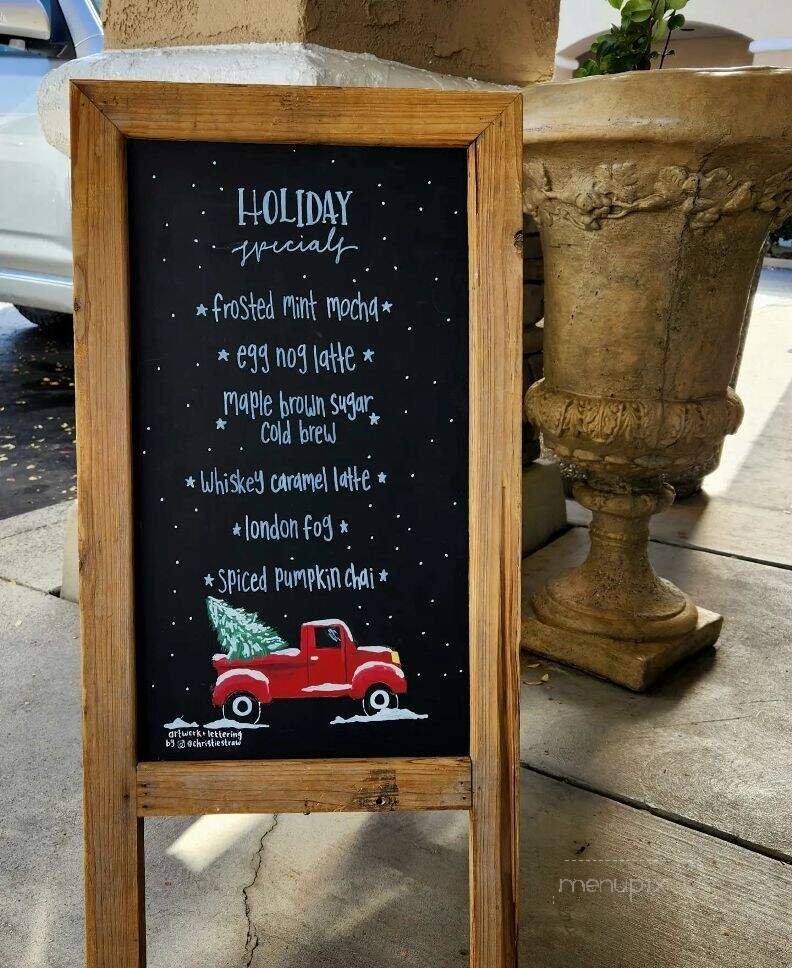 HOLIDAY
specials
frosted mint mocha
egg nog latte
maple brown sugar
cold brew
whiskey caramel latte
london fog
spiced pumpkin chai
artwork + lettering
by @christiestraw
menupix